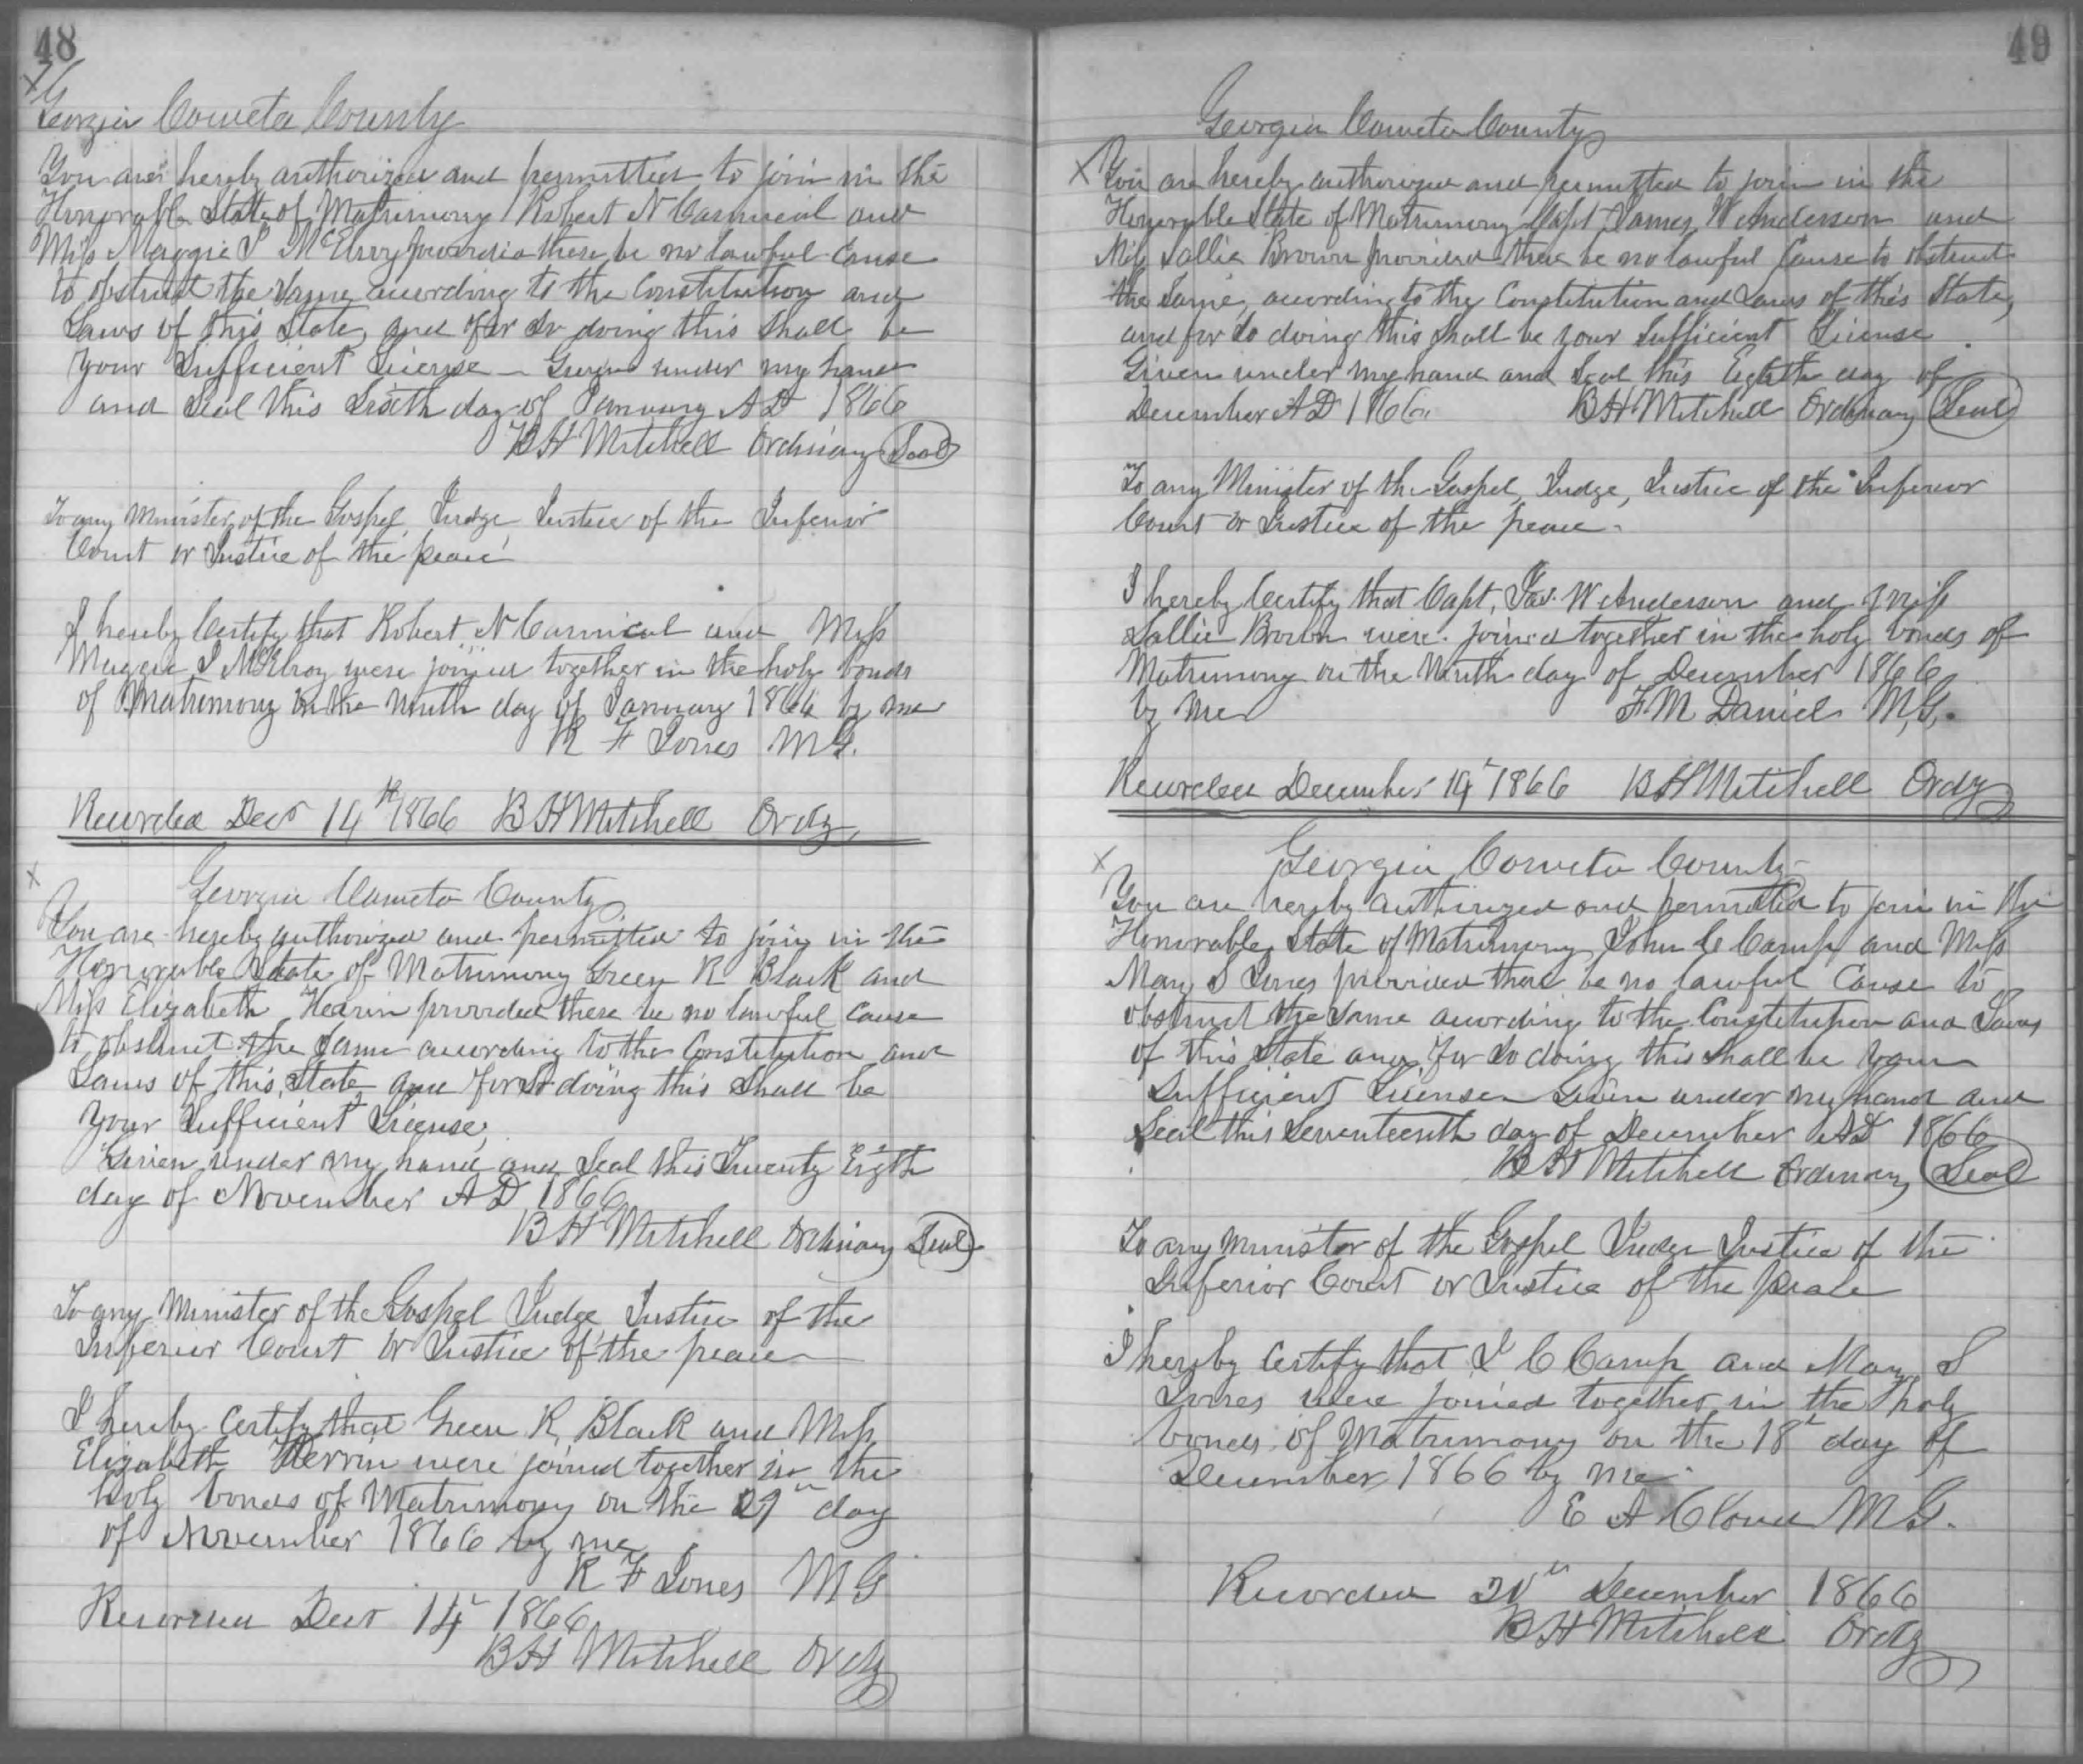 48
Georgia Coweta County
You are hereby authorized and permitted to join in the
Honorable State of Matrimony Robert N Carmical and
Miss Maggie S McElroy provided there be no lawful Cause
to obstruct the Same according to the Constitution and
Laws of this State, and for So doing this Shall be
your Sufficient License — Given under my hand
and Seal this Sixth day of January AD 1866
B H Mitchell Ordinary Seal
To any Minister of the Gospel, Judge, Justice of the Inferior
Court or Justice of the peace
I hereby Certify that Robert N Carmical and Miss
Maggie S McElroy were joined together in the holy bonds
of Matrimony on the Ninth day of January 1866 by me
R F Jones M G.
Recorded Decr 14th 1866 B H Mitchell Ordy
Georgia Coweta County
You are hereby authorized and permitted to join in the
Honorable State of Matrimony Green R Black and
Miss Elizabeth Hearin provided there be no lawful Cause
to obstruct the Same according to the Constitution and
Laws of this State and for So doing this Shall be
your Sufficient License,
Given under my hand and Seal this Twenty Eigth
day of November AD 1866
B H Mitchell Ordinary Seal
To any Minister of the Gospel Judge Justice of the
Inferior Court or Justice of the peace
I hereby Certify that Green R. Black and Miss
Elizabeth Herrin were joined together in the
holy bonds of Matrimony on the 29th day
of November 1866 by me
R F Jones M G
Recorded Decr 14th 1866
B H Mitchell Ordy
49
Georgia Coweta County
You are hereby authorized and permitted to join in the
Honorable State of Matrimony Capt James W Anderson and
Miss Sallie Brown provided there be no lawful Cause to obstruct
the Same, according to the Constitution and Laws of this State,
and for So doing this Shall be your Sufficient License.
Given under my hand and Seal this Eighth day of
December AD 1866 B H Mitchell Ordinary Seal
To any Minister of the Gospel, Judge, Justice of the Inferior
Court or Justice of the peace.
I hereby Certify that Capt. Jas. W Anderson and Miss
Sallie Brown were joined together in the holy bonds of
Matrimony on the Ninth day of December 1866
by me F. M Daniel M, G,.
Recorded December 14th 1866 B H Mitchell Ordy
Georgia Coweta County
You are hereby authorized and permitted to join in the
Honorable State of Matrimony John C Camp and Miss
Mary S Jones provided there be no lawful Cause to
obstruct the Same according to the Constitution and Laws
of this State and for So doing this Shall be your
Sufficient License Given under my hand and
Seal this Seventeenth day of December AD 1866
B H Mitchell Ordinary Seal
To any Minister of the Gospel Judge Justice of the
Inferior Court or Justice of the peace
I hereby Certify that J C Camp and Mary S
Jones were joined together in the holy
bonds of Matrimony on the 18th day of
December 1866 by me
E A Cloud M G.
Recorded 20th December 1866
B H Mitchell Ordy